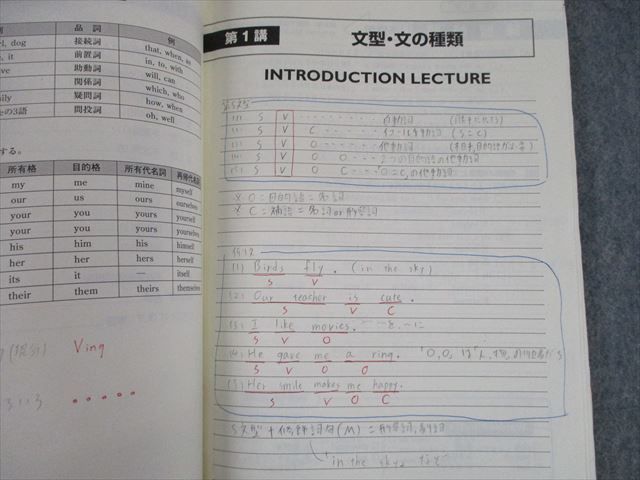 品詞 例
rl, dog 接続詞 that, when, as
, it 前置詞 in, to, with
ve 助動詞 will, can
関係詞 which, who
ily 疑問詞 how, when
の3語 間投詞 oh, well
する。
所有格 目的格 所有代名詞 再帰代名詞
my me mine myself
our us ours ourselves
your you yours yourself
your you yours yourselves
his him his himself
her her hers herself
its it — itself
their them theirs themselves
Ving
第1講 文型・文の種類
INTRODUCTION LECTURE
(1) S V 自動詞
(2) S V C
(3) S V O 他動詞
(4) S V O O 2つの目的語の他動詞
(5) S V O C O=Cの他動詞
※ O=目的語=名詞
※ C=補語=名詞or形容詞
例2
(1) Birds fly. (in the sky)
S V
(2) Our teacher is cute.
S V C
(3) I like movies.
S V O
(4) He gave me a ring.
S V O O
(5) Her smile makes me happy.
S V O C
5文型+修飾詞句(M)=
"in the sky"など